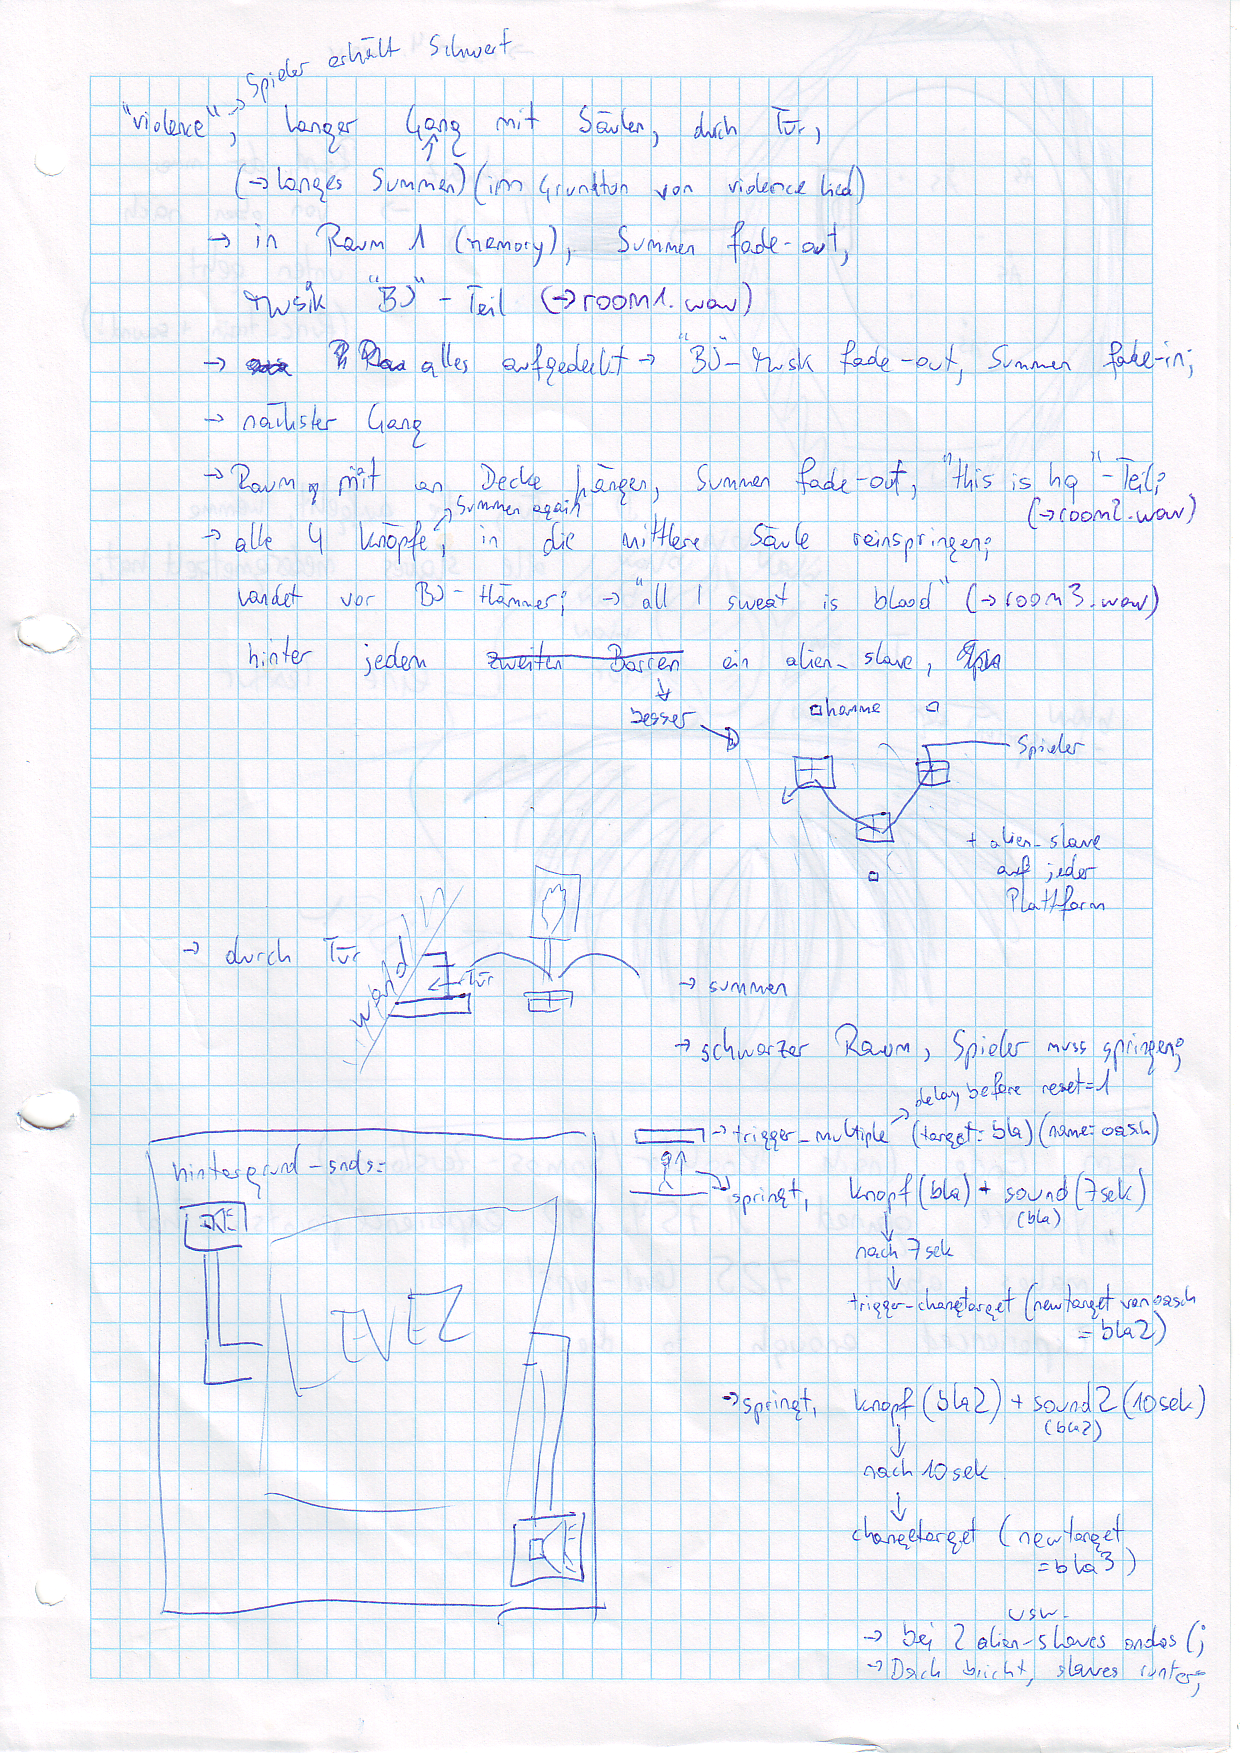 Spieler erhält Schwert
"violence", langer Gang mit Säulen, durch Tür,
(→ langes Summen) (im Grundton von violence lied)
→ in Raum 1 (memory), Summen fade-out,
Musik "BJ"-Teil (→ room1.wav)
→ alles aufgedeckt → "BJ"-Musik fade-out, Summen fade-in;
→ nächster Gang
→ Raum mit an Decke hängen, Summen fade-out, "this is hq"-Teil;
(→ room2.wav)
→ Summen again
→ alle 4 Knöpfe, in die mittlere Säule reinspringen;
landet vor BJ-Hämmer; → "all I sweat is blood" (→ room3.wav)
hinter jedem zweiten Barren ein alien-slave,
besser
hamme
Spieler
+ alien-slave
auf jeder
Plattform
→ durch Tür
Wand
Tür
→ summen
→ schwarzer Raum, Spieler muss springen;
delay before reset=1
→ trigger_multiple (target: bla) (name: oasch)
springt, knopf (bla) + sound (7sek)
(bla)
nach 7sek
trigger-changetarget (newtarget von oasch
= bla2)
→ springt, knopf (bla2) + sound2 (10sek)
(bla2)
nach 10sek
changetarget (newtarget
= bla3)
usw.
→ bei 2 alien-slaves
→ Dach bricht, slaves runter;
hintergrund-snds:
LEVEL